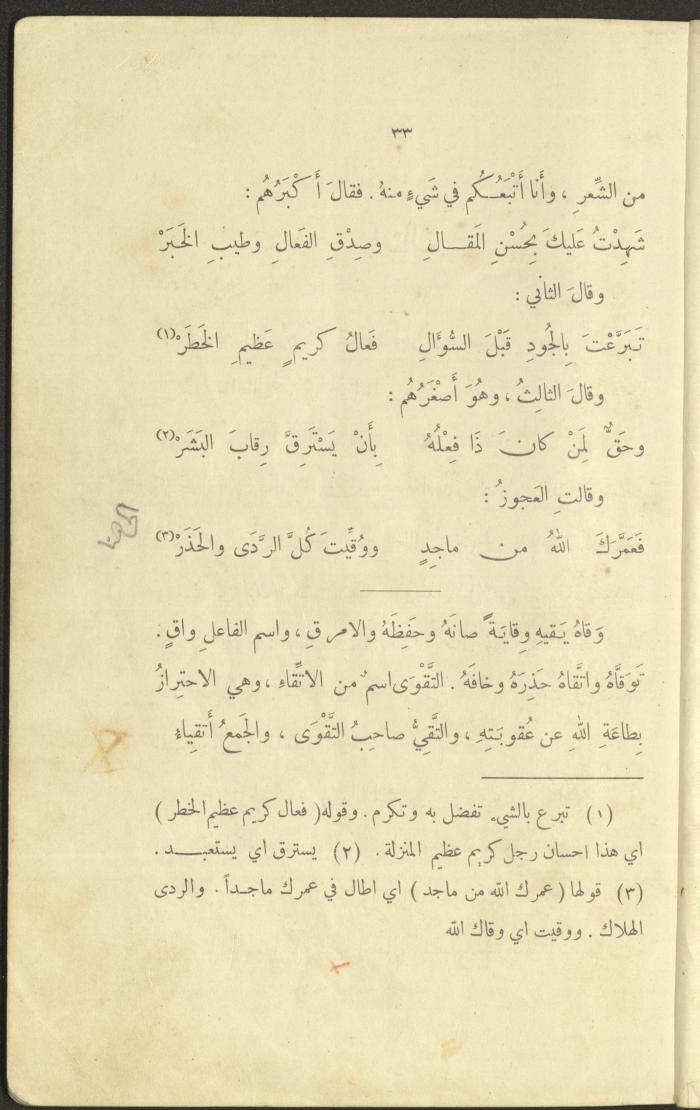 ٣٣
من الشِّعرِ ، وأَنا أَتْبَعُكُم في شَيءٍ منهُ . فقالَ أَكْبَرُهُم :
شَهِدْتُ عَليكَ بِحُسْنِ المَقالِ وصِدْقِ الفَعالِ وطيبِ الخَبَرْ
وقالَ الثاني :
تَبَرَّعْتَ بِالجُودِ قَبْلَ السُّؤَالِ فَعالُ كريمٍ عَظيمِ الخَطَرْ (١)
وقالَ الثالِثُ ، وهُوَ أَصْغَرُهُم :
وحَقٌّ لِمَنْ كانَ ذَا فِعْلُهُ بِأَنْ يَسْتَرِقَّ رِقابَ البَشَرْ (٢)
وقالتِ العَجوزُ :
فَعَمَّرَكَ اللهُ من ماجِدٍ ووُقِّيتَ كُلَّ الرَّدَى والحَذَرْ (٣)
وَقاهُ يَقيهِ وِقايَةً صانَهُ وحَفِظَهُ والامر قِ ، واسم الفاعلِ واقٍ .
تَوَقَّاهُ واتَّقاهُ حَذِرَهُ وخافَهُ . التَّقْوَى اسمٌ من الاتِّقاءِ ، وهي الاحتِرازُ
بِطاعَةِ اللهِ عن عُقوبَتِهِ ، والتَّقِيُّ صاحِبُ التَّقْوَى ، والجَمعُ أَتقِياءُ
(١) تبرع بالشيء تفضل به وتكرم . وقوله ( فعال كريم عظيم الخطر )
اي هذا احسان رجل كريم عظيم المنزلة . (٢) يسترق اي يستعبد .
(٣) قولها ( عمرك الله من ماجد ) اي اطال في عمرك ماجداً . والردى
الهلاك . ووقيت اي وقاك الله